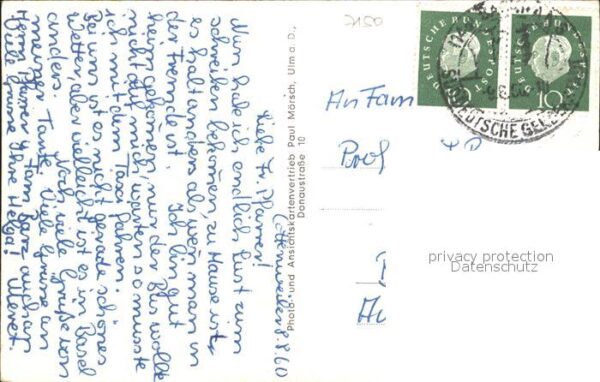 8.8.60
Liebe Fr. Pfarrer!
Nun habe ich endlich Lust zum
schreiben bekommen, zu Hause ist
es halt anders als wenn man in
der Fremde ist. Ich bin gut
heim gekommen, nur der Bus wollte
nicht auf mich warten so musste
ich mit dem Taxi fahren.
Bei uns ist es nicht gerade schönes
Wetter, aber vielleicht ist es in Basel
anders. Noch viele Grüße von
meiner Tante. Viele Grüsse an
Herrn Pfarrer u. Fam.
Viele Grüsse Ihre Helga!
Photo- und Ansichtskartenvertrieb Paul Mörsch, Ulm a.D.,
Donaustraße 10
7150
DEUTSCHE BUNDESPOST
10
DEUTSCHE BUNDESPOST
10
An Fam
Prof
privacy protection
Datenschutz